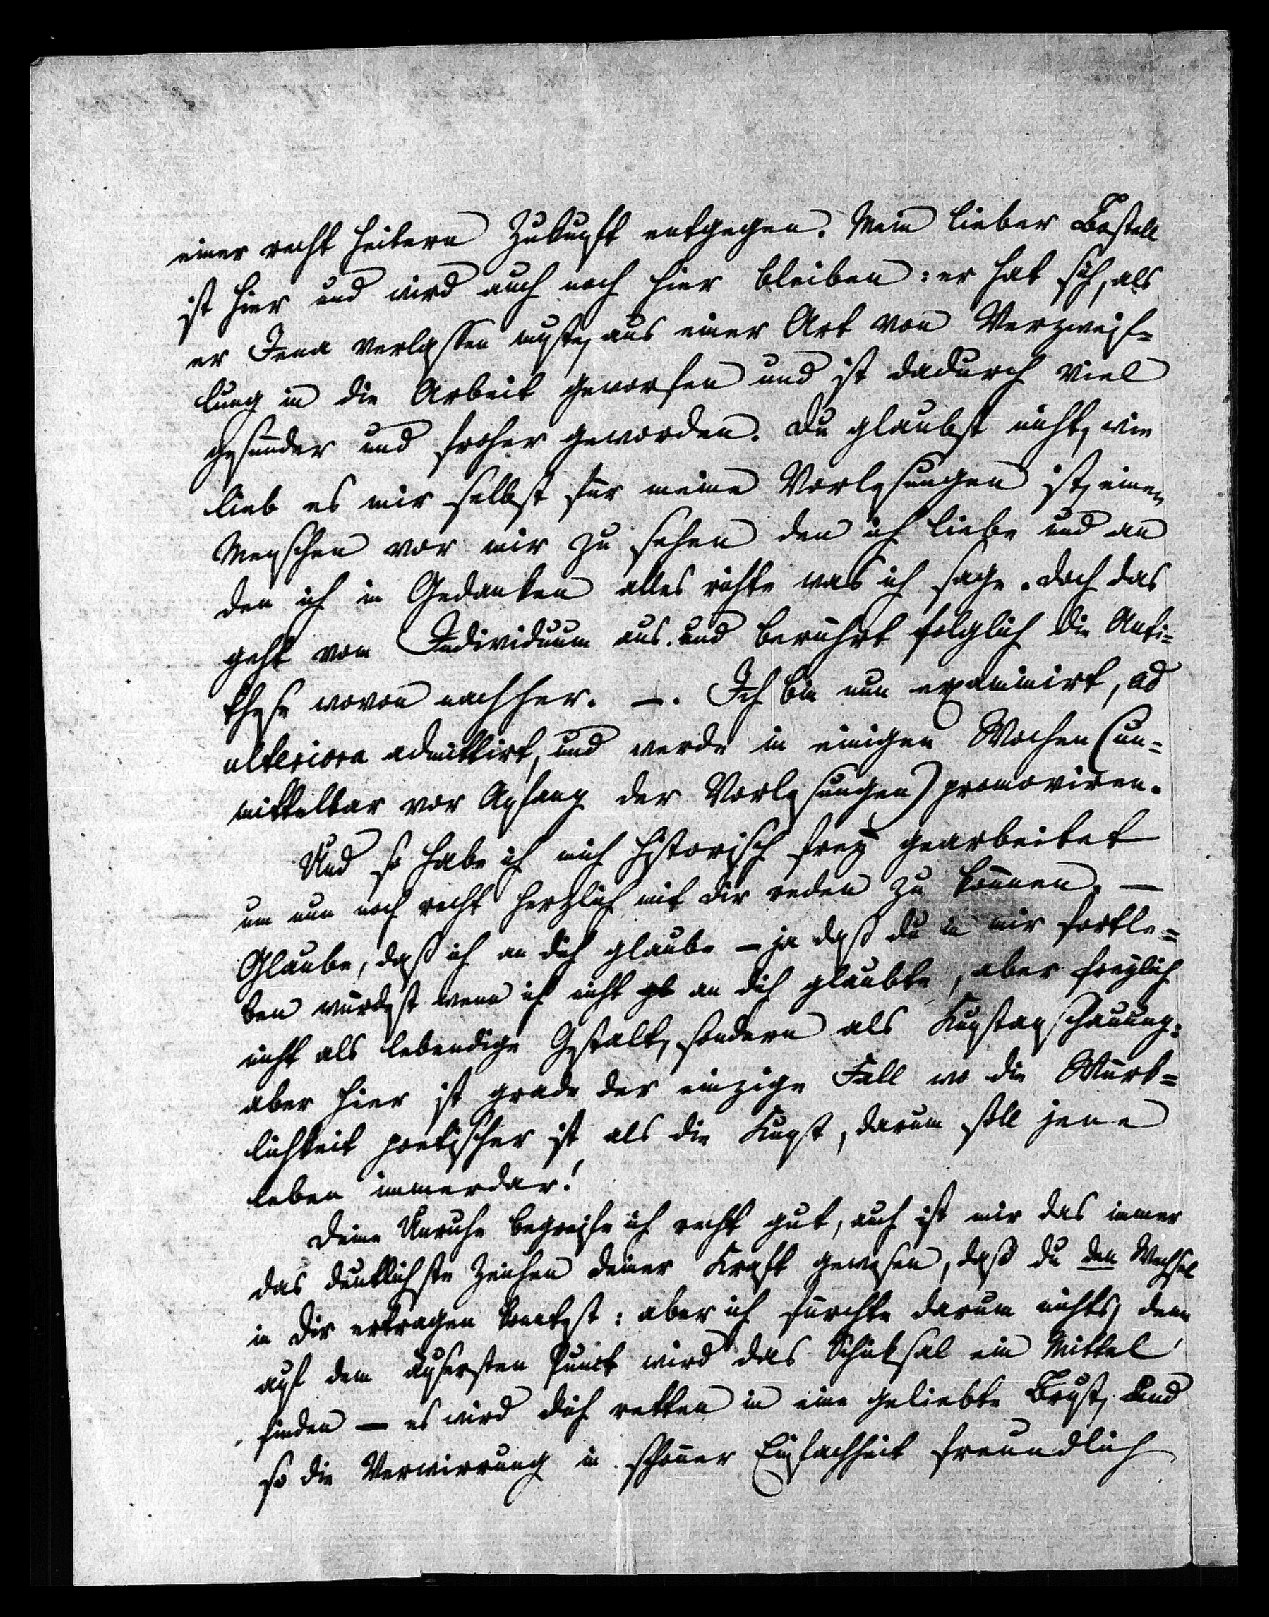 einer recht heitern Zukunft entgegen. Mein lieber Bostell
ist hier und wird auch noch hier bleiben: er hat sich, als
er Jena verlassen muste, aus einer Art von Verzweif-
lung in die Arbeit geworfen und ist dadurch viel
gesunder und froher geworden. Du glaubst nicht, wie
lieb es mir selbst für meine Vorlesungen ist, einen
Menschen vor mir zu sehen den ich liebe und an
den ich in Gedanken alles richte was ich sage. Doch das
geht vom Individuum aus und berührt folglich die Anti-
these wovon nachher. —. Ich bin nun examinirt, ad
ulteriora admittirt, und werde in einigen Wochen (un-
mittelbar vor Anfang der Vorlesungen) promoviren.
Und so habe ich mich historisch frey gearbeitet
um nun noch recht herzlich mit dir reden zu können. —
Glaube, daß ich an dich glaube — ja daß du in mir fortle-
ben würdest wenn ich nicht an dich glaubte, aber freylich
nicht als lebendige Gestalt, sondern als Kunstanschauung:
aber hier ist grade der einzige Fall wo die Würk-
lichkeit poetischer ist als die Kunst, darum soll jene
leben immerdar!
Deine Unruhe begreife ich recht gut, auch ist mir das immer
das deutlichste Zeichen deiner Kraft gewesen, daß du den Wechsel
in dir ertragen konntest: aber ich fürchte darum nichts, denn
auf dem äusersten Punct wird das Schicksal ein Mittel
finden — es wird dich retten in eine geliebte Brust, und
so die Verwirrung in schöner Einfachheit freundlich